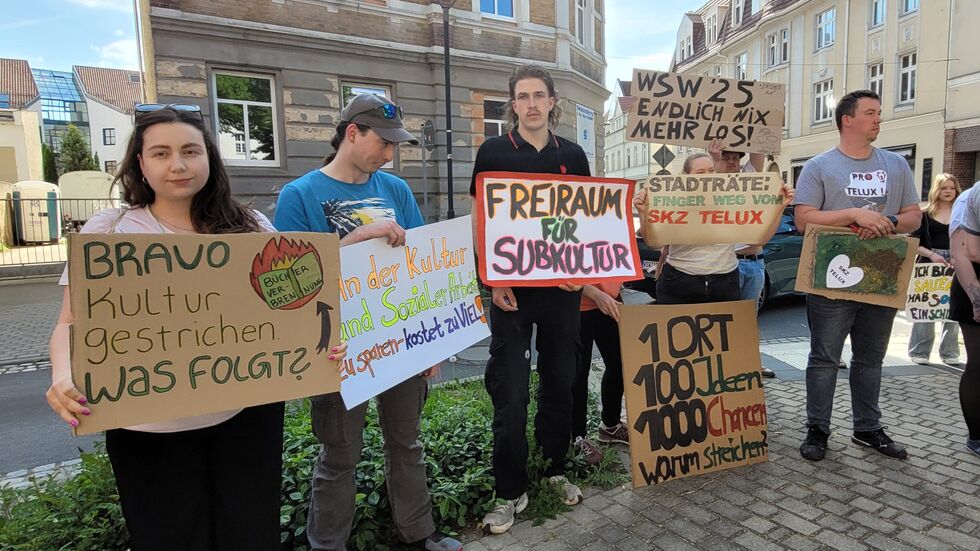 BRAVO
KULTUR
gestrichen.
WAS FOLGT?
BÜCHER
VER-
BRENNUNG
In der Kultur
und Sozialer Arbeit
zu sparen-kostet zu Viel!
FREIRAUM
FÜR
SUBKULTUR
WSW '25
ENDLICH NIX
MEHR LOS!
STADTRÄTE:
FINGER WEG VOM
SKZ TELUX
1 ORT
100 Ideen
1000 Chancen
warum streichen?
PRO
TELUX!
SKZ
TELUX